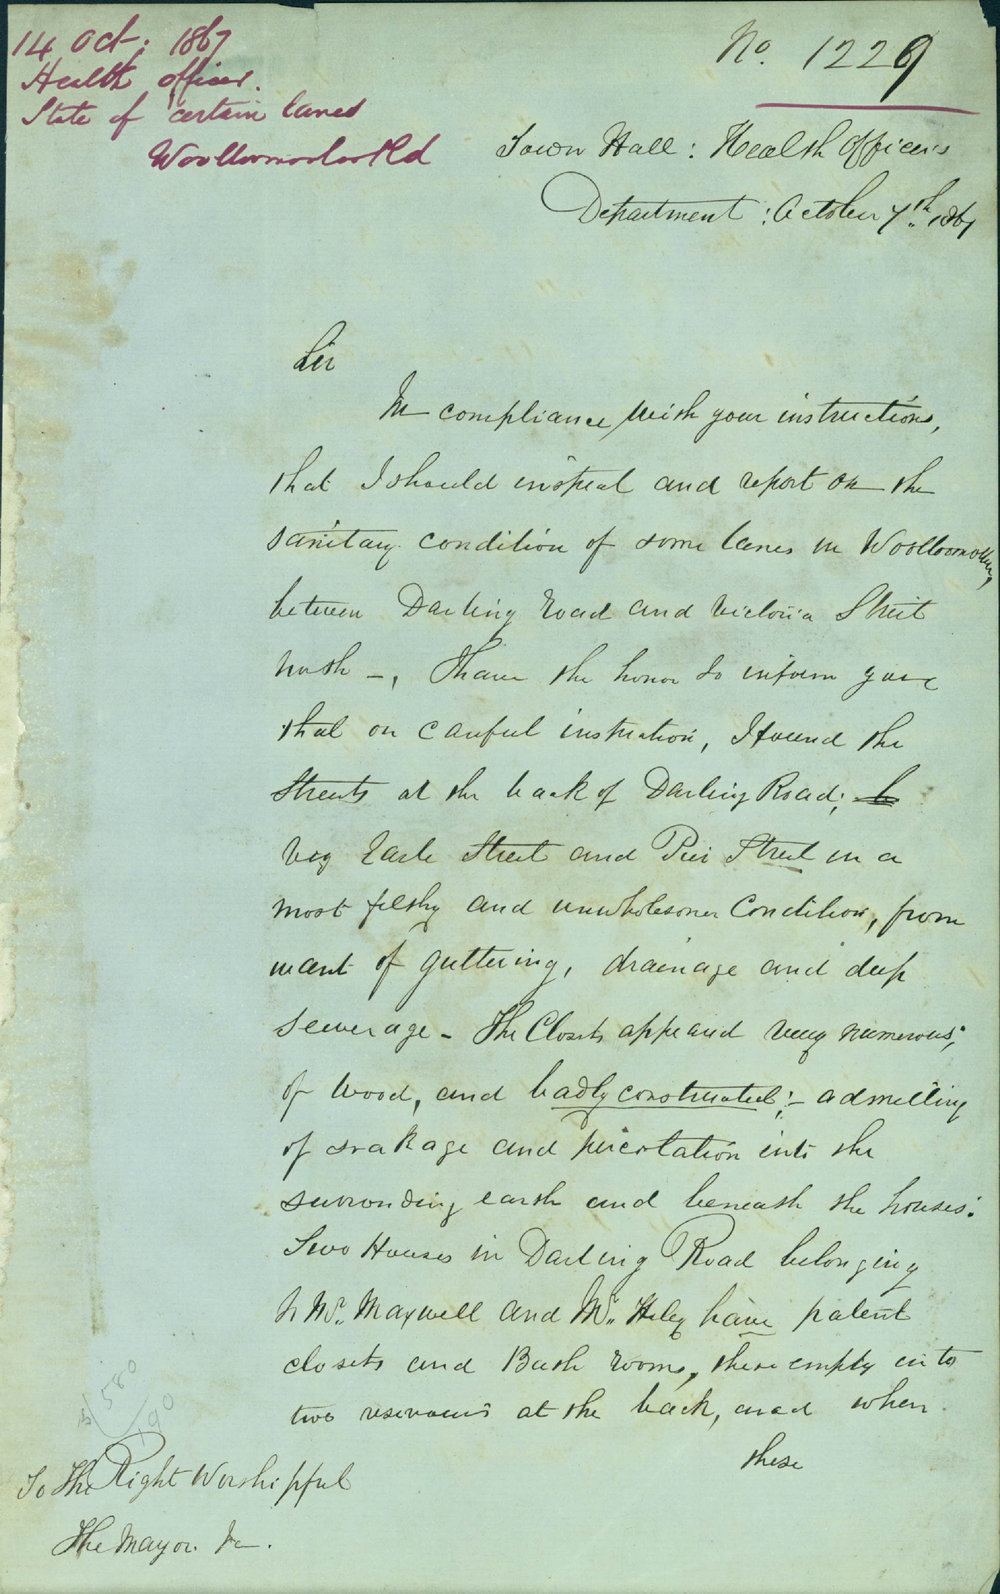 14 Oct: 1867
Health officer.
State of certain lanes
Woolloomooloo Rd
No. 1229
Town Hall: Health Officer's
Department: October 7th 1867
Sir
In compliance with your instructions,
that I should inspect and report on the
sanitary condition of some lanes in Woolloomooloo,
between Darling Road and Victoria Street
North -, I have the honor to inform you
that on careful instruction, I found the
Streets at the back of Darling Road;
viz Earle Street and Pier Street in a
most filthy and unwholesome Condition, from
want of guttering, drainage and deep
sewerage - The Closets appeared very numerous;
of wood, and badly constructed; - admitting
of soakage and percolation into the
surronding earth and beneath the houses:
Two Houses in Darling Road belonging
to Mr. Maxwell and Mr. Hely have patent
closets and Bath rooms, these empty into
two reservours at the back, and when
these
580
90
To The Right Worshipful
The Mayor &c.